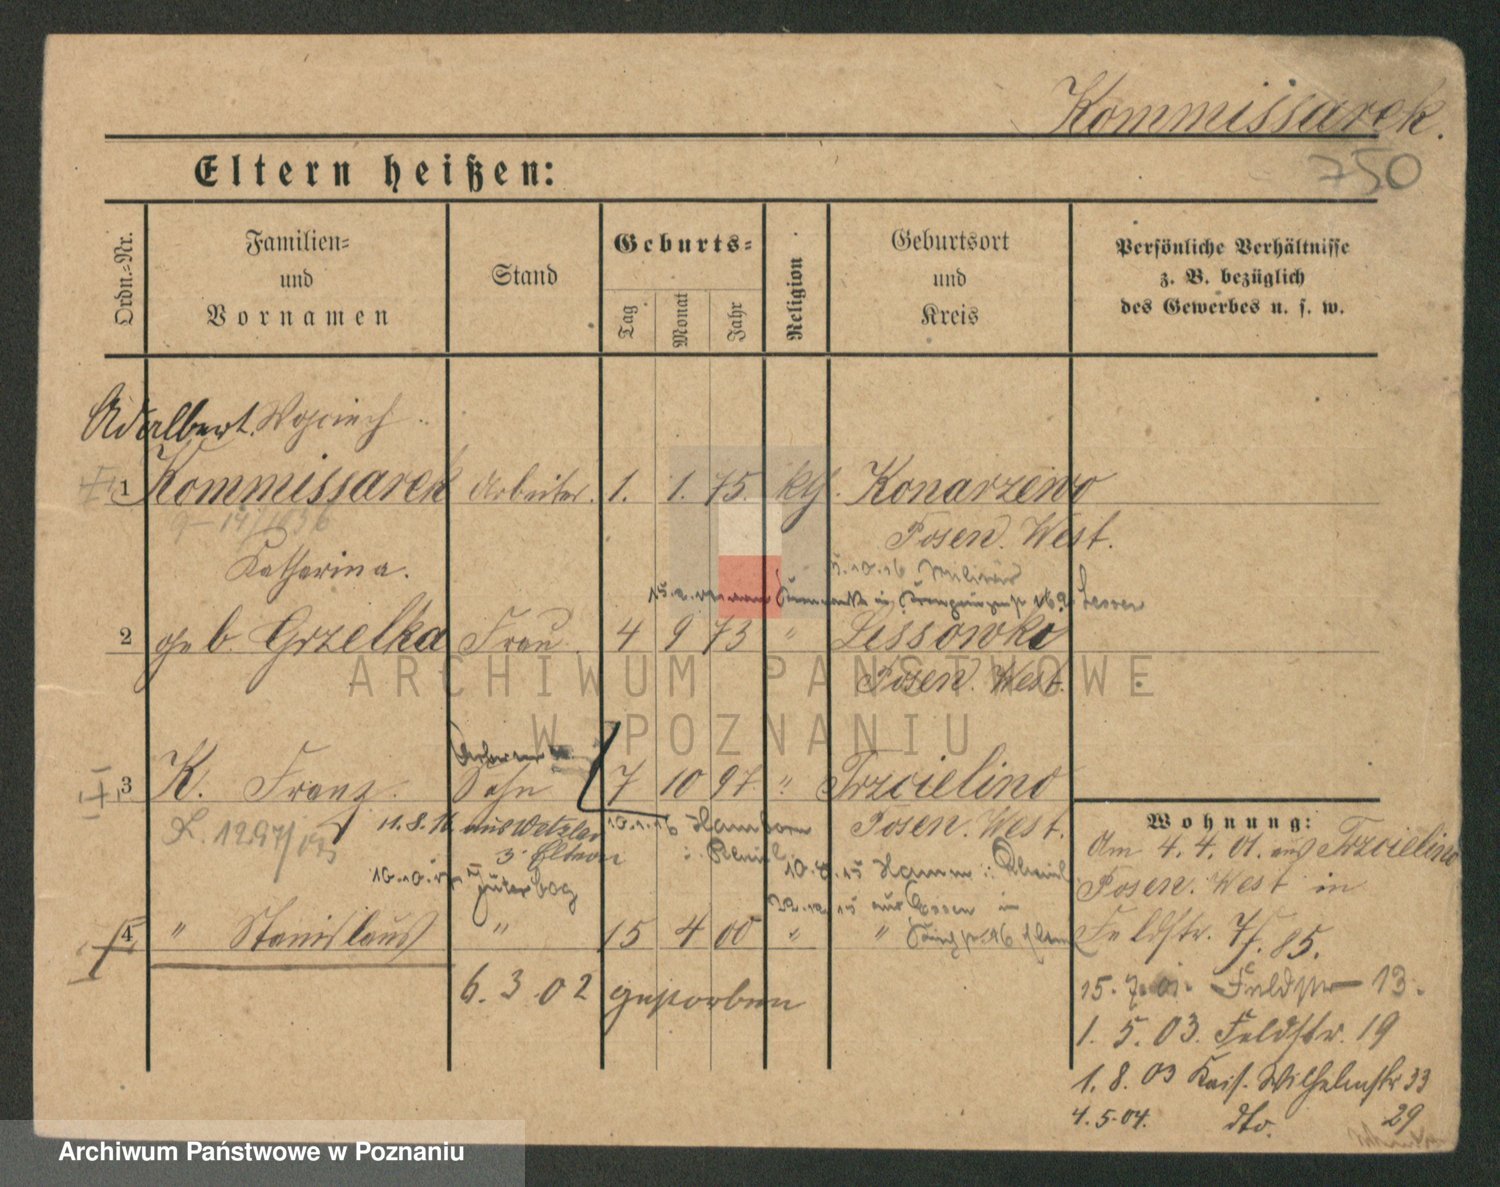 Kommissarek.
750
Eltern heißen:
Ordn.-Nr.
Familien-
und
Vornamen
Stand
Geburts-
Tag
Monat
Jahr
Religion
Geburtsort
und
Kreis
Persönliche Verhältnisse
z. B. bezüglich
des Gewerbes u. s. w.
Adalbert. Wojciech
1 Kommissarek Arbeiter. 1. 1. 75. kth. Konarzewo
Posen. West.
Katharina.
5.10.16 Militär
2 geb. Grzelka Frau 4 9 73 " Lissowko
Posen. West.
3 K. Franz. Sohn 7 10 97. " Trzcielino
Posen. West.
11.8.16 aus Wetzlar 10.1.16 Hamborn
z. Eltern
10.8.15 Hamm
Jüterbog
22.12.15 aus Essen in
4 " Stanislaus " 15 4 00 " "
6. 3. 02 gestorben
Wohnung:
Am 4. 4. 01. aus Trzcielino
Posen. West in
Feldstr. 7/. 85.
15. 7. 01. Feldstr 13.
1. 5. 03. Feldstr. 19
1. 8. 03 Kais. Wilhelmstr 33
4. 5. 04. dto. 29
ARCHIWUM PAŃSTWOWE
W POZNANIU
Archiwum Państwowe w Poznaniu